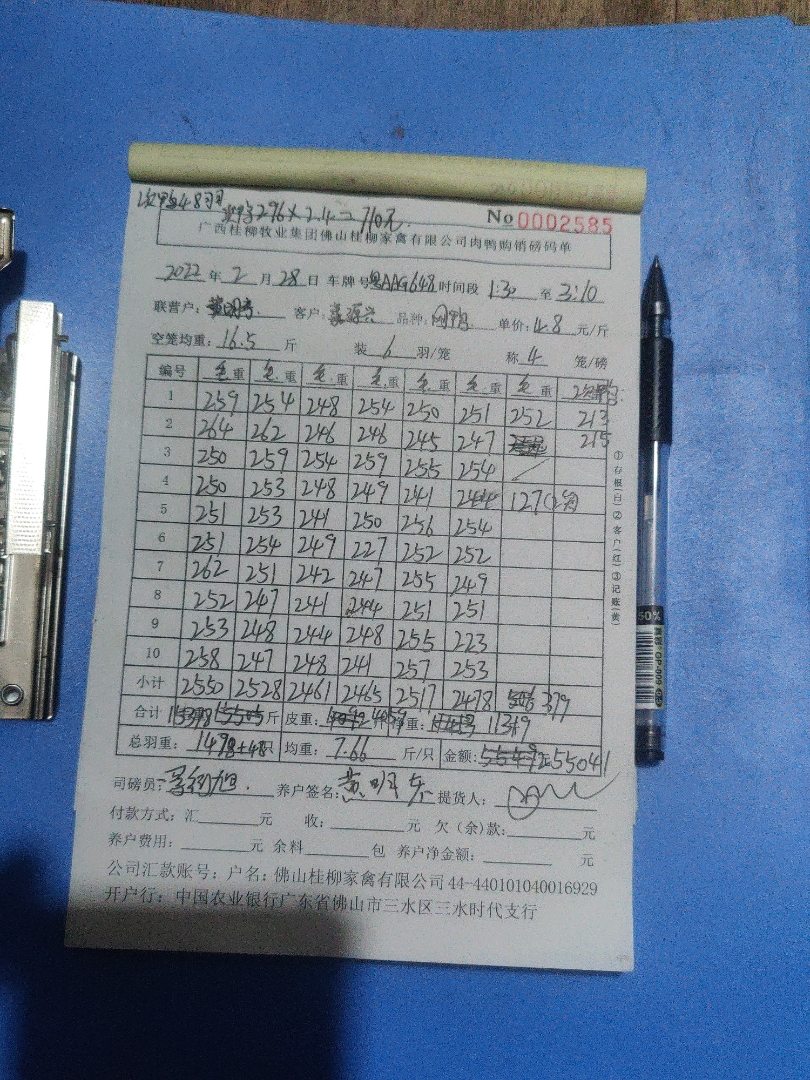 次鸭48羽
次鸭296×2.4=710元.
No 0002585
广西桂柳牧业集团佛山桂柳家禽有限公司肉鸭购销磅码单
2022年2月28日 车牌号粤AAG648时间段 1:30 至 3:10
联营户: 客户: 品种: 单价:4.8元/斤
空笼均重:16.5斤 装6羽/笼 称4笼/磅
编号 毛.重 毛.重 毛.重 毛.重 毛.重 毛.重 毛重 次鸭:
1 259 254 248 254 250 251 252 213
2 264 262 246 246 245 247 215
3 250 259 254 259 255 254
4 250 253 248 249 241 244 127(2笼)
5 251 253 241 250 256 254
6 251 254 249 227 252 252
7 262 251 242 247 255 249
8 252 247 241 244 251 251
9 253 248 244 248 255 223
10 258 247 248 241 257 253
小计 2550 2528 2461 2465 2517 2478 379
合计 斤 皮重: 4059 净重: 11319
总羽重: 1478+48只 均重: 7.66 斤/只 金额: 55041
司磅员: 养户签名:黄明东 提货人:
付款方式:汇 元 收: 元 欠(余)款: 元
养户费用: 元 余料 包 养户净金额: 元
公司汇款账号:户名:佛山桂柳家禽有限公司44-440101040016929
开户行:中国农业银行广东省佛山市三水区三水时代支行
①存根(白)②客户(红)③记账(黄)
50%
GP-009